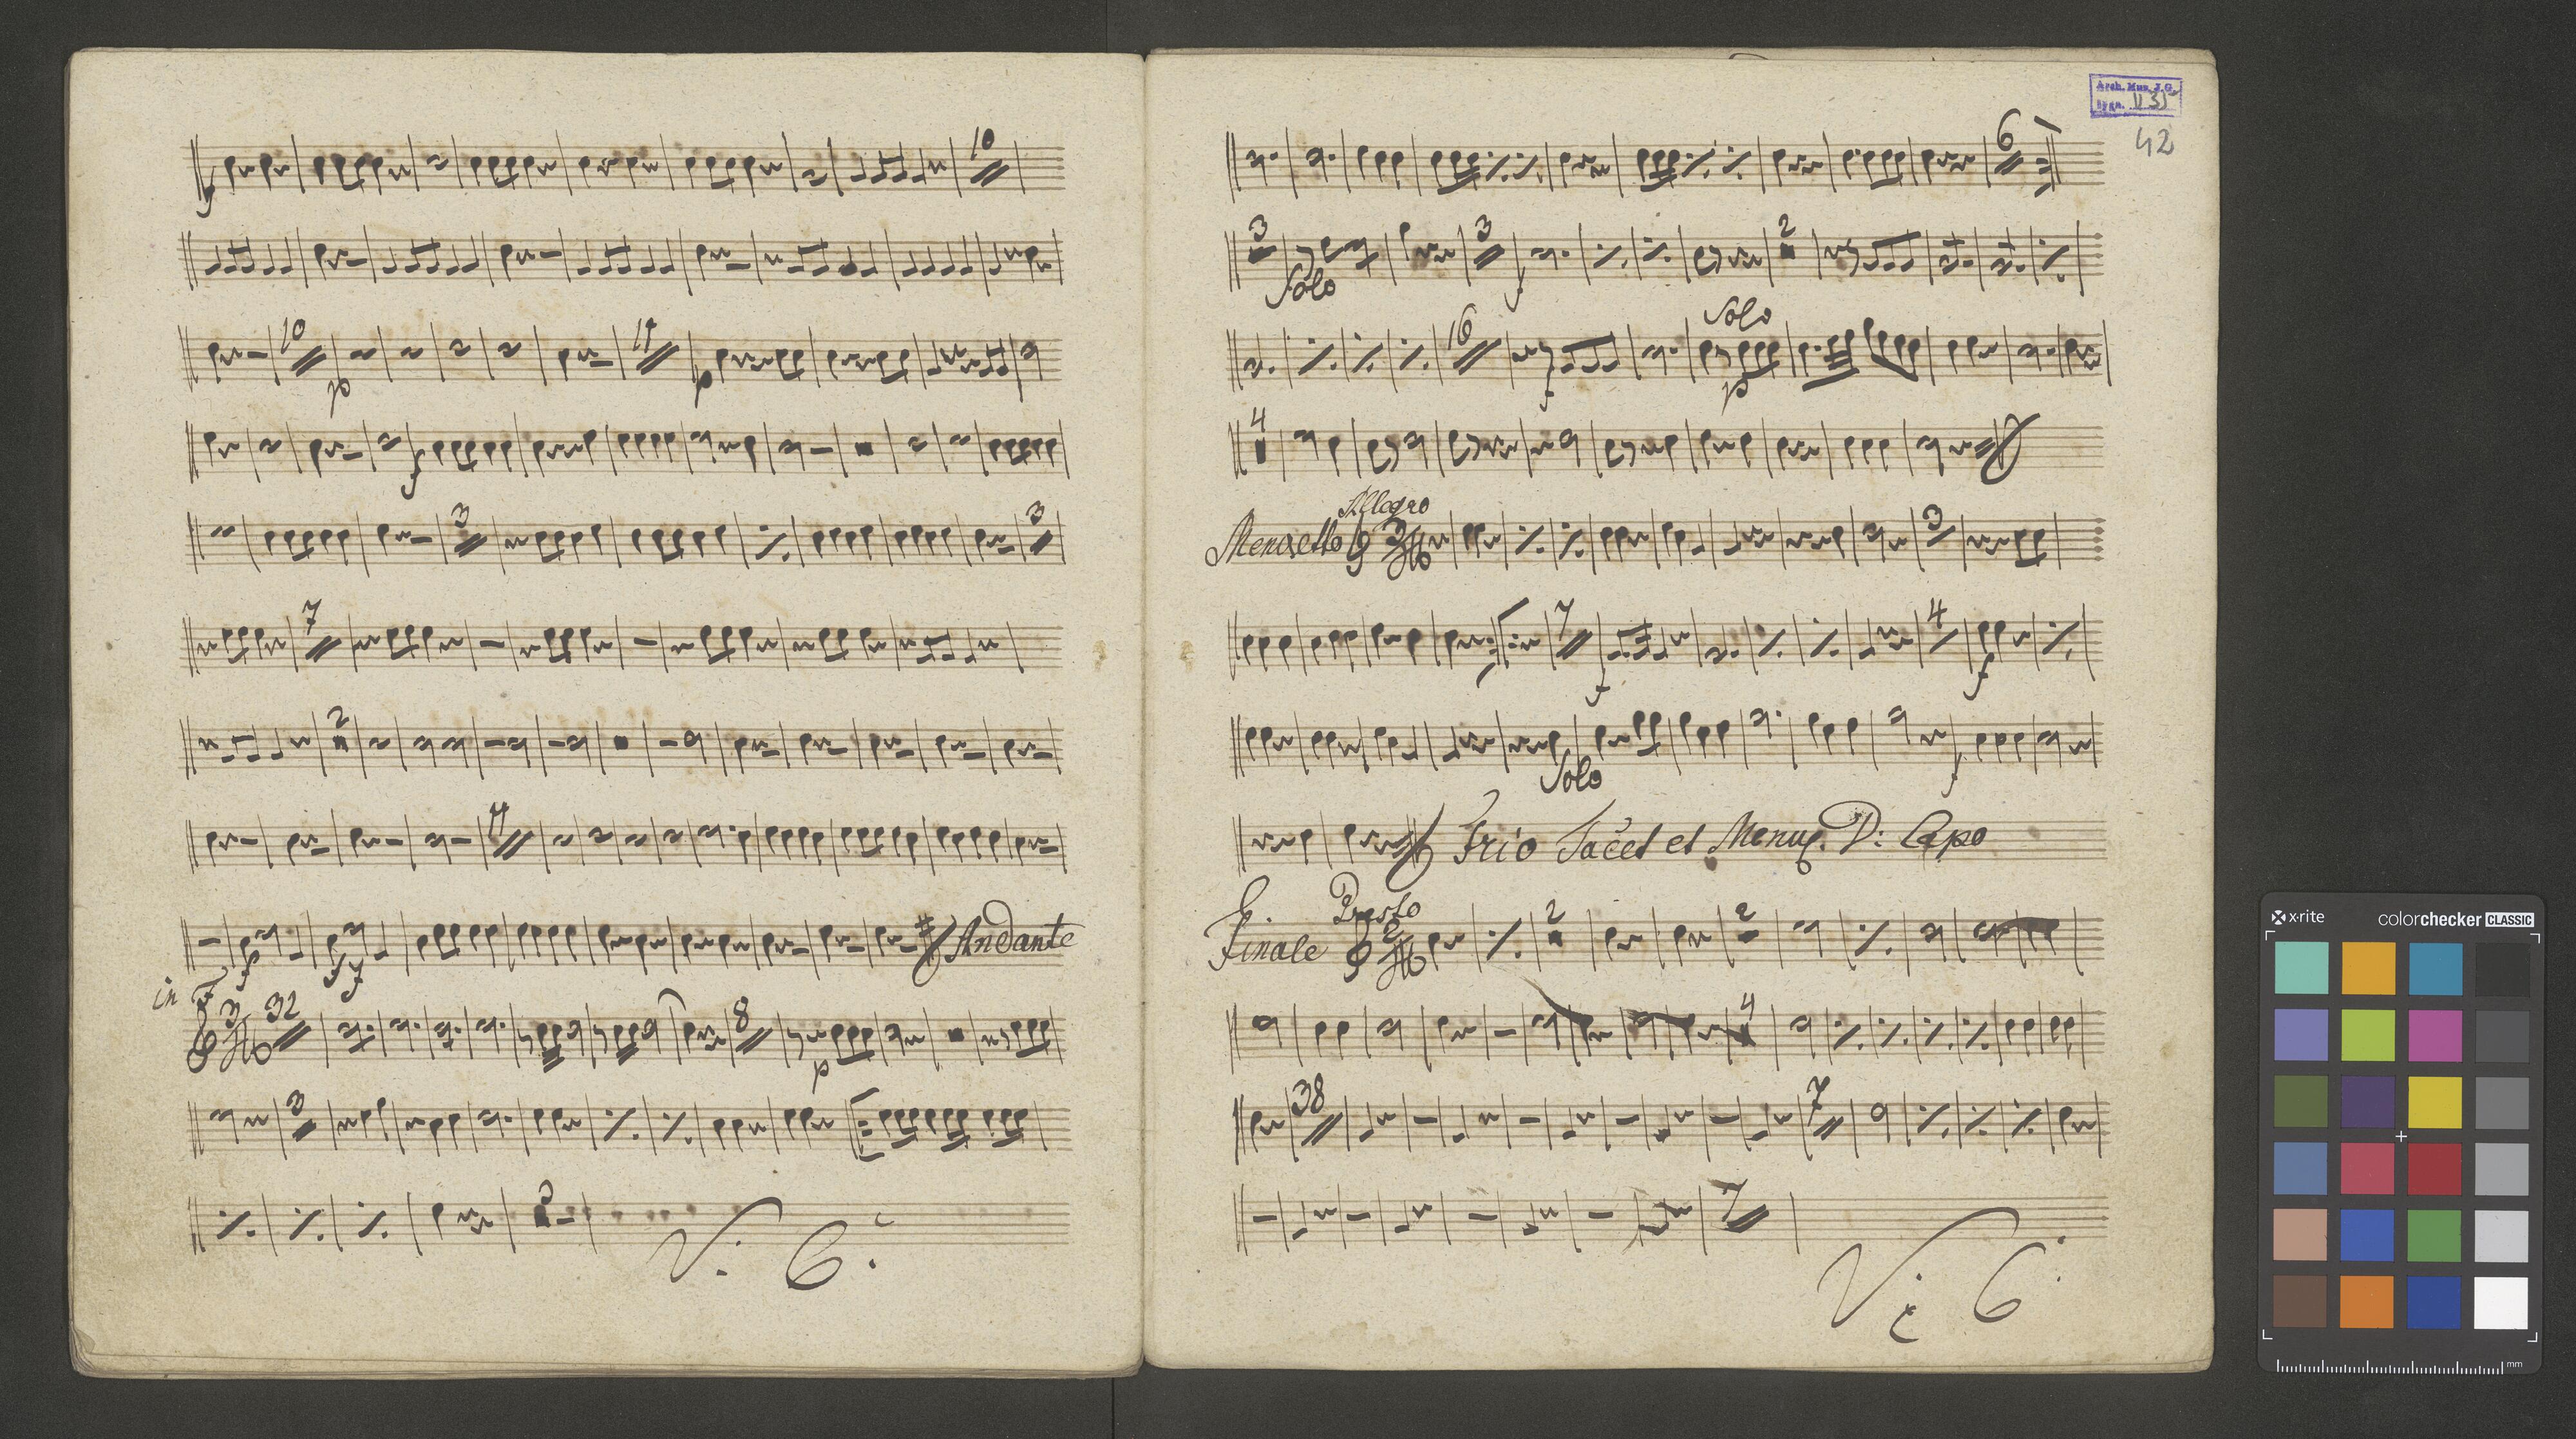 10
10
p
17
p
f
3
3
7
2
4
f
f
f
Andante
in F
3
32
8
p
3
2
V. C.
Arch. Mus. J.G.
42
6
3
3
2
Solo
f
Solo
16
f
p
4
Allegro
Menuetto 3
3
7
4
f
f
Solo
f
Trio Tacet et Menu. D: Capo
Presto
Finale 2
2
2
4
38
7
7
V: C.
x-rite colorchecker CLASSIC
mm